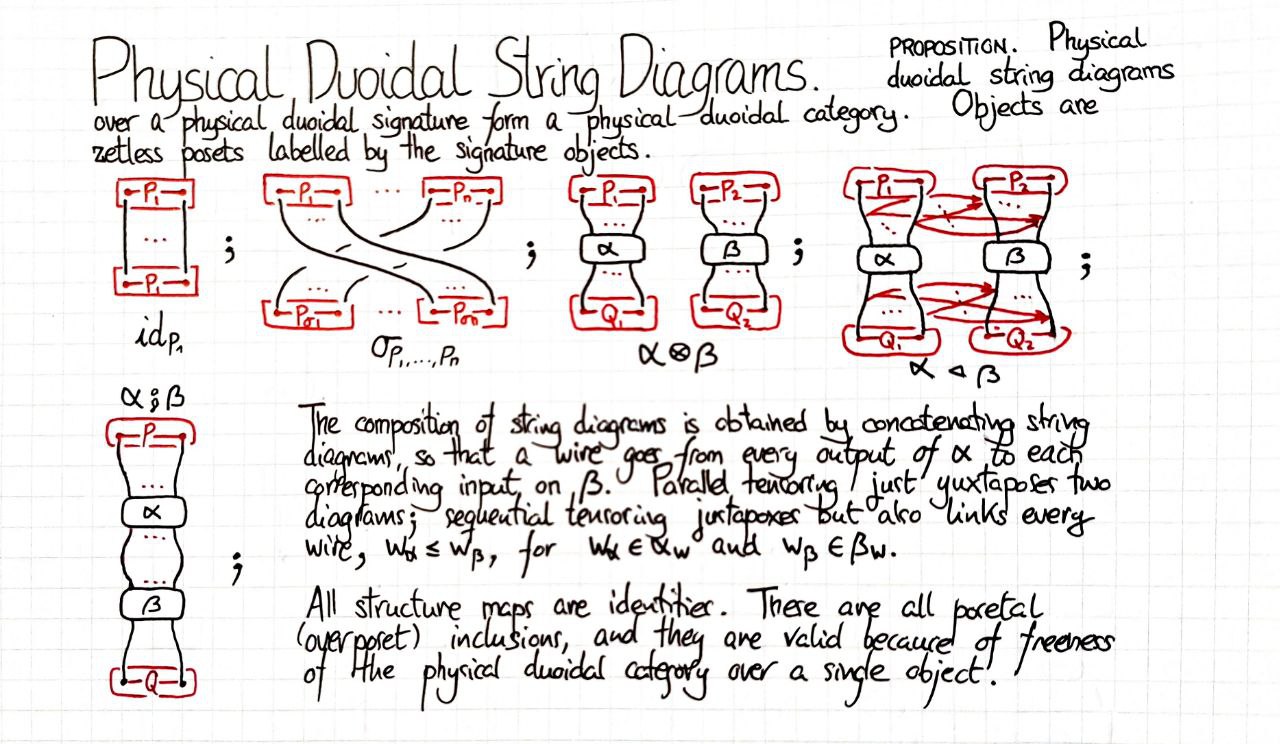 Physical Duoidal String Diagrams.
PROPOSITION. Physical
duoidal string diagrams
over a physical duoidal signature form a physical duoidal category. Objects are
zetless posets labelled by the signature objects.
P₁ P₁ ... Pₙ P₁ P₂ P₁ P₂
... ; ... ... ; ... ... ; ... ... ;
α β α β
P₁ Pσ₁ ... Pσₙ Q₁ Q₂ Q₁ Q₂
id_P₁ σ_P₁,...,Pₙ α ⊗ β α ◁ β
α ⨟ β
P
...
α
...
β
Q
;
The composition of string diagrams is obtained by concatenating string
diagrams, so that a wire goes from every output of α to each
corresponding input on β. Parallel tensoring just yuxtaposes two
diagrams; sequential tensoring juxtapoxes but also links every
wire, w_α ≤ w_β, for w_α ∈ α_w and w_β ∈ β_w.
All structure maps are identities. These are all posetal
(over poset) inclusions, and they are valid because of freeness
of the physical duoidal category over a single object.